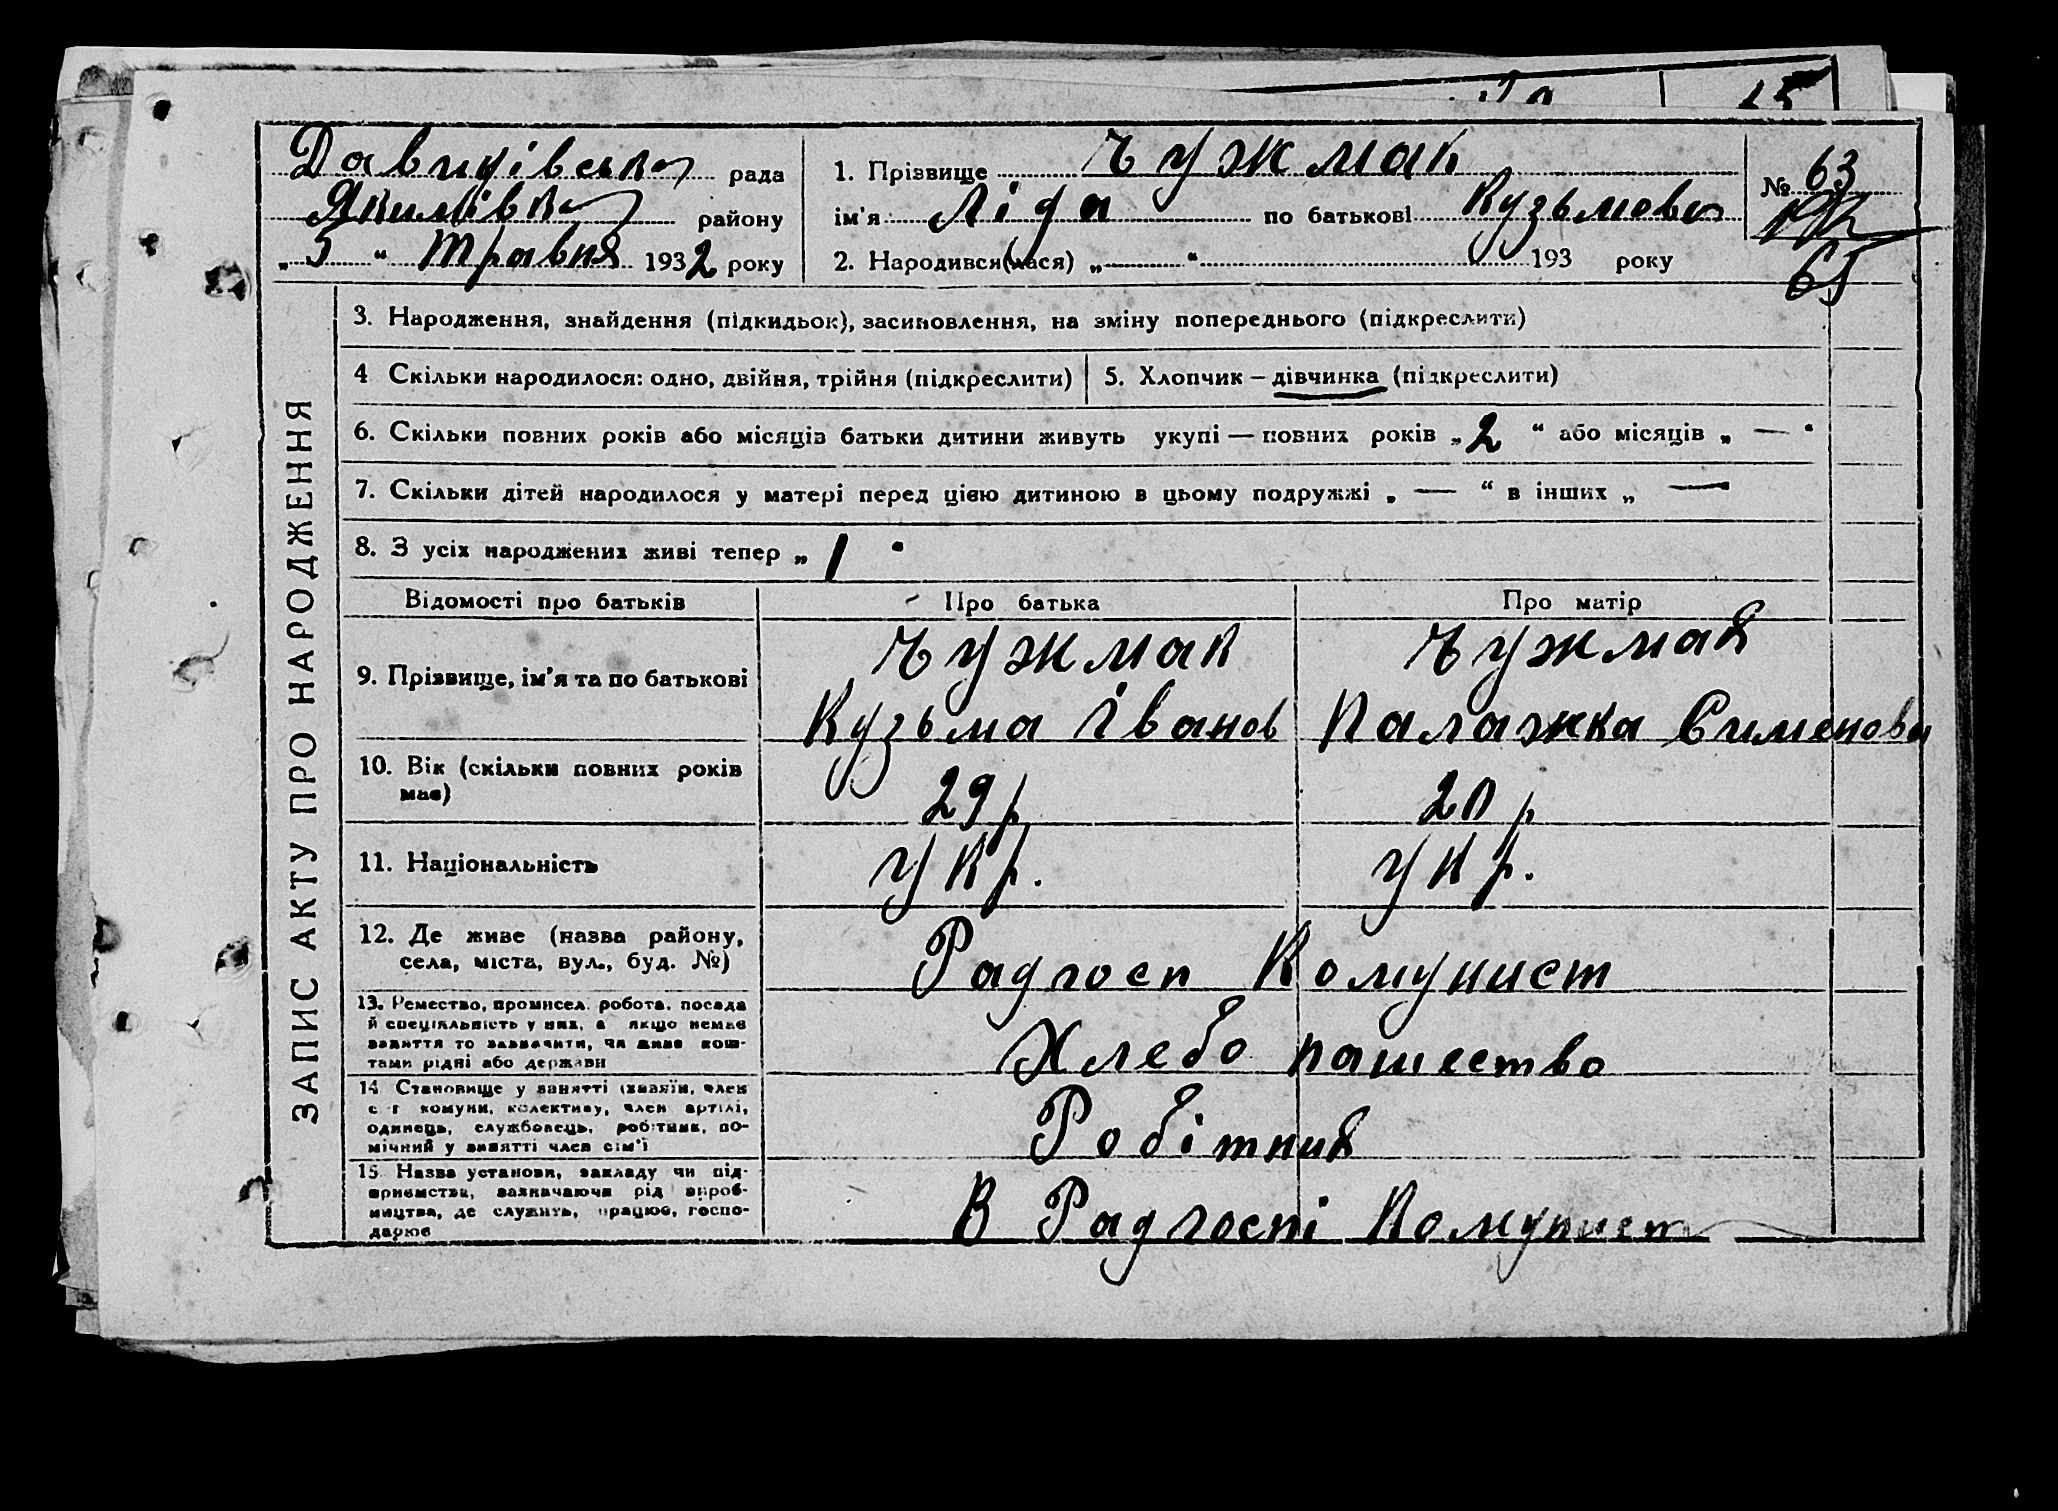 Давидівська рада
Якимівка району
„ 5 “ травня 1932 року
1. Прізвище Чужмак
ім'я Ліда по батькові Кузьмова
2. Народився(лася) „ “ 193 року
№ 63
65
ЗАПИС АКТУ ПРО НАРОДЖЕННЯ
3. Народження, знайдення (підкидьок), засиновлення, на зміну попереднього (підкреслити)
4 Скільки народилося: одно, двійня, трійня (підкреслити)
5. Хлопчик – дівчинка (підкреслити)
6. Скільки повних років або місяців батьки дитини живуть укупі — повних років „ 2 “ або місяців „ —
7. Скільки дітей народилося у матері перед цією дитиною в цьому подружжі „ — “ в інших „ —
8. З усіх народжених живі тепер „ 1
Відомості про батьків Про батька Про матір
9. Прізвище, ім'я та по батькові
Чужмак Чужмак
Кузьма Іванов Палажка Сименова
10. Вік (скільки повних років
має)
29 р 20 р
11. Національність
укр. укр.
12. Де живе (назва району,
села, міста, вул., буд. №)
Радгосп Комунист
13. Ремество, промисел, робота, посада
й спеціяльність у них, а якщо немає
заняття то зазначити, чи живе кош-
тами рідні або держави
Хлебо пашество
14 Становище у занятті (хазяїн, член
с г комуни, колективу, член артілі,
одинець, службовець, робітник, по-
мічний у занятті член сім'ї
Робітник
15. Назва установи, закладу чи під-
приємства, зазначаючи рід вироб-
ництва, де служить, працює, госпо-
дарює
В Радгоспі Комунист